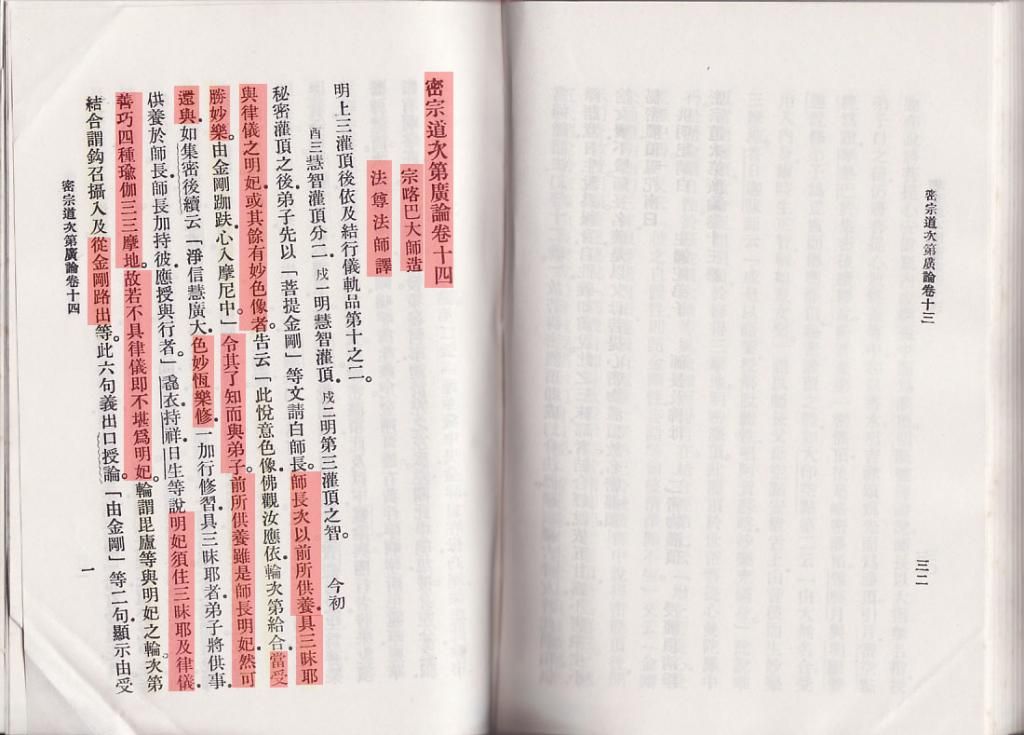 密宗道次第廣論卷十三
三二
密宗道次第廣論卷十四
宗喀巴大師造
法尊法師譯
明上三灌頂後依及結行儀軌品第十之二。
酉三慧智灌頂分二．戌一明慧智灌頂．戌二明第三灌頂之智。　今初
秘密灌頂之後弟子先以「菩提金剛」等文請白師長。師長次以前所供養．具三昧耶
與律儀之明妃或其餘有妙色像者．告云「此悅意色像佛觀汝應依輪次第給合當受
勝妙樂．由金剛跏趺心入摩尼中」令其了知而與弟子．前所供養雖是師長明妃然可
還與．如集密後續云「淨信慧廣大．色妙恆樂修一加行修習具三昧耶者弟子將供事．
供養於師長．師長加持彼．應授與行者」毳衣．持祥．日生等說明妃須住三昧耶及律儀
善巧四種瑜伽三三摩地．故若不具律儀即不堪爲明妃．輪謂毘盧等與明妃之輪．次第
結合謂鈎召攝入及從金剛路出等．此六句義出口授論「由金剛」等二句．顯示由受
密宗道次第廣論卷十四
一